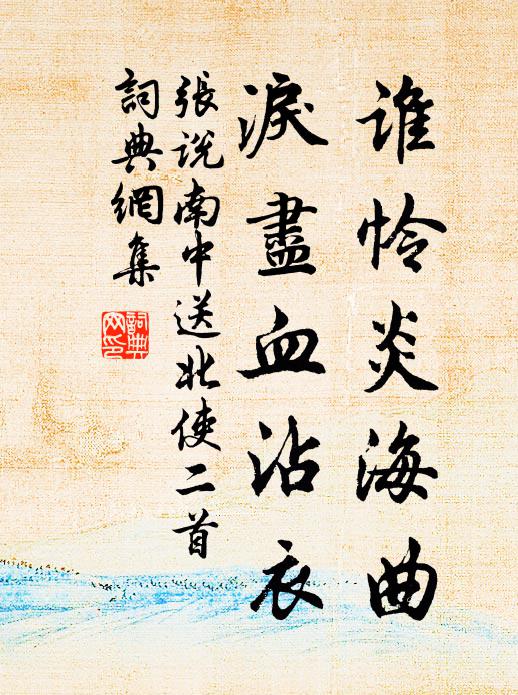 谁怜炎海曲
淚盡血沾衣
張说南中送北使二首
詞典網集
詞典网印